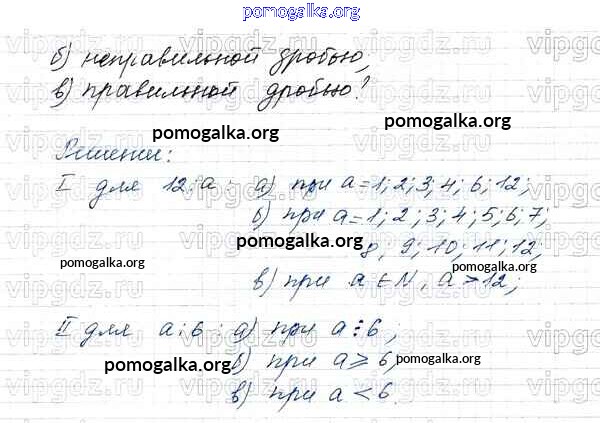 pomogalka.org
б) неправильной дробью,
в) правильной дробью?
pomogalka.org
Решение:
I для 12:a : а) при a=1; 2; 3; 4; 6; 12;
б) при a=1; 2; 3; 4; 5; 6; 7;
pomogalka.org
8, 9; 10; 11; 12,
pomogalka.org
pomogalka.org
в) при a ∈ N, a > 12;
II для a:6 : а) при a ⋮ 6;
pomogalka.org
б) при a ⩾ 6,
pomogalka.org
в) при a < 6.